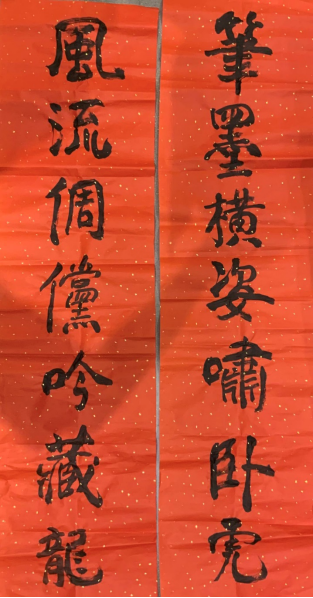 筆墨橫姿嘯卧虎
風流倜儻吟藏龍